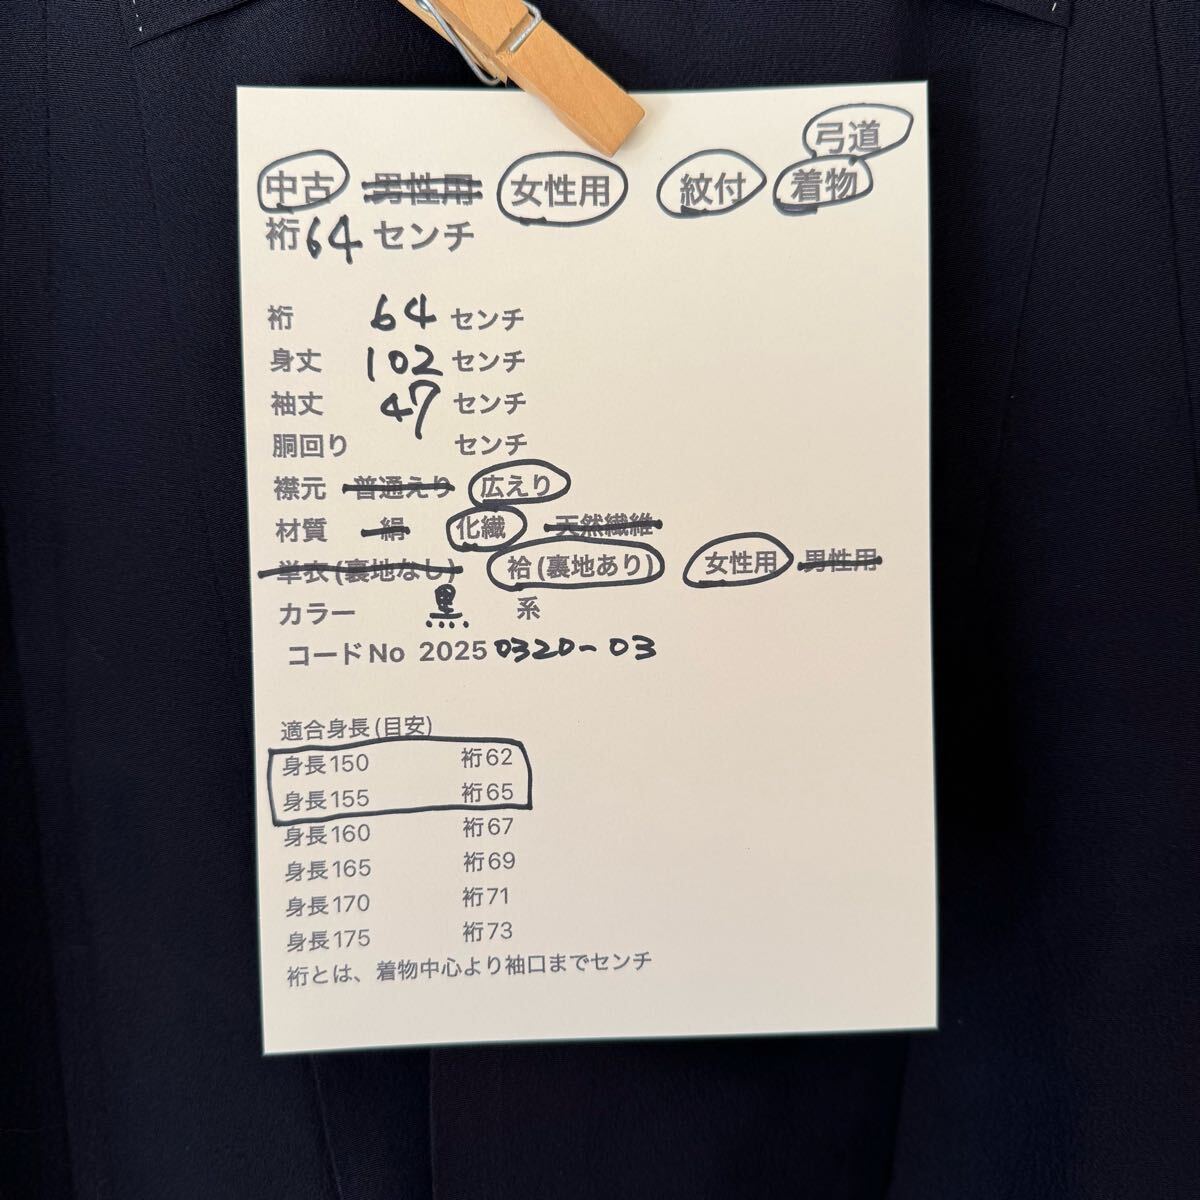 弓道
中古 男性用 女性用 紋付 着物
裄64センチ
裄 64 センチ
身丈 102 センチ
袖丈 47 センチ
胴回り センチ
襟元 普通えり 広えり
材質 絹 化繊 天然繊維
単衣(裏地なし) 袷(裏地あり) 女性用 男性用
カラー 黒 系
コードNo 20250320-03
適合身長(目安)
身長150 裄62
身長155 裄65
身長160 裄67
身長165 裄69
身長170 裄71
身長175 裄73
裄とは、着物中心より袖口までセンチ